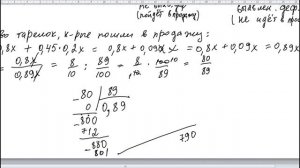 (пойдет в продажу)
(не идёт в прод
во тарелок, к-рые пошли в продажу:
0,8x + 0,45·0,2x = 0,8x + 0,09x = 0,8x + 0,09x = 0,89x
= 0,8x/0,89x = 8/10 : 89/100 = 8/10 · 100/89 = 80/89
80 | 89
0 | 0,89
800
712
880
801
790